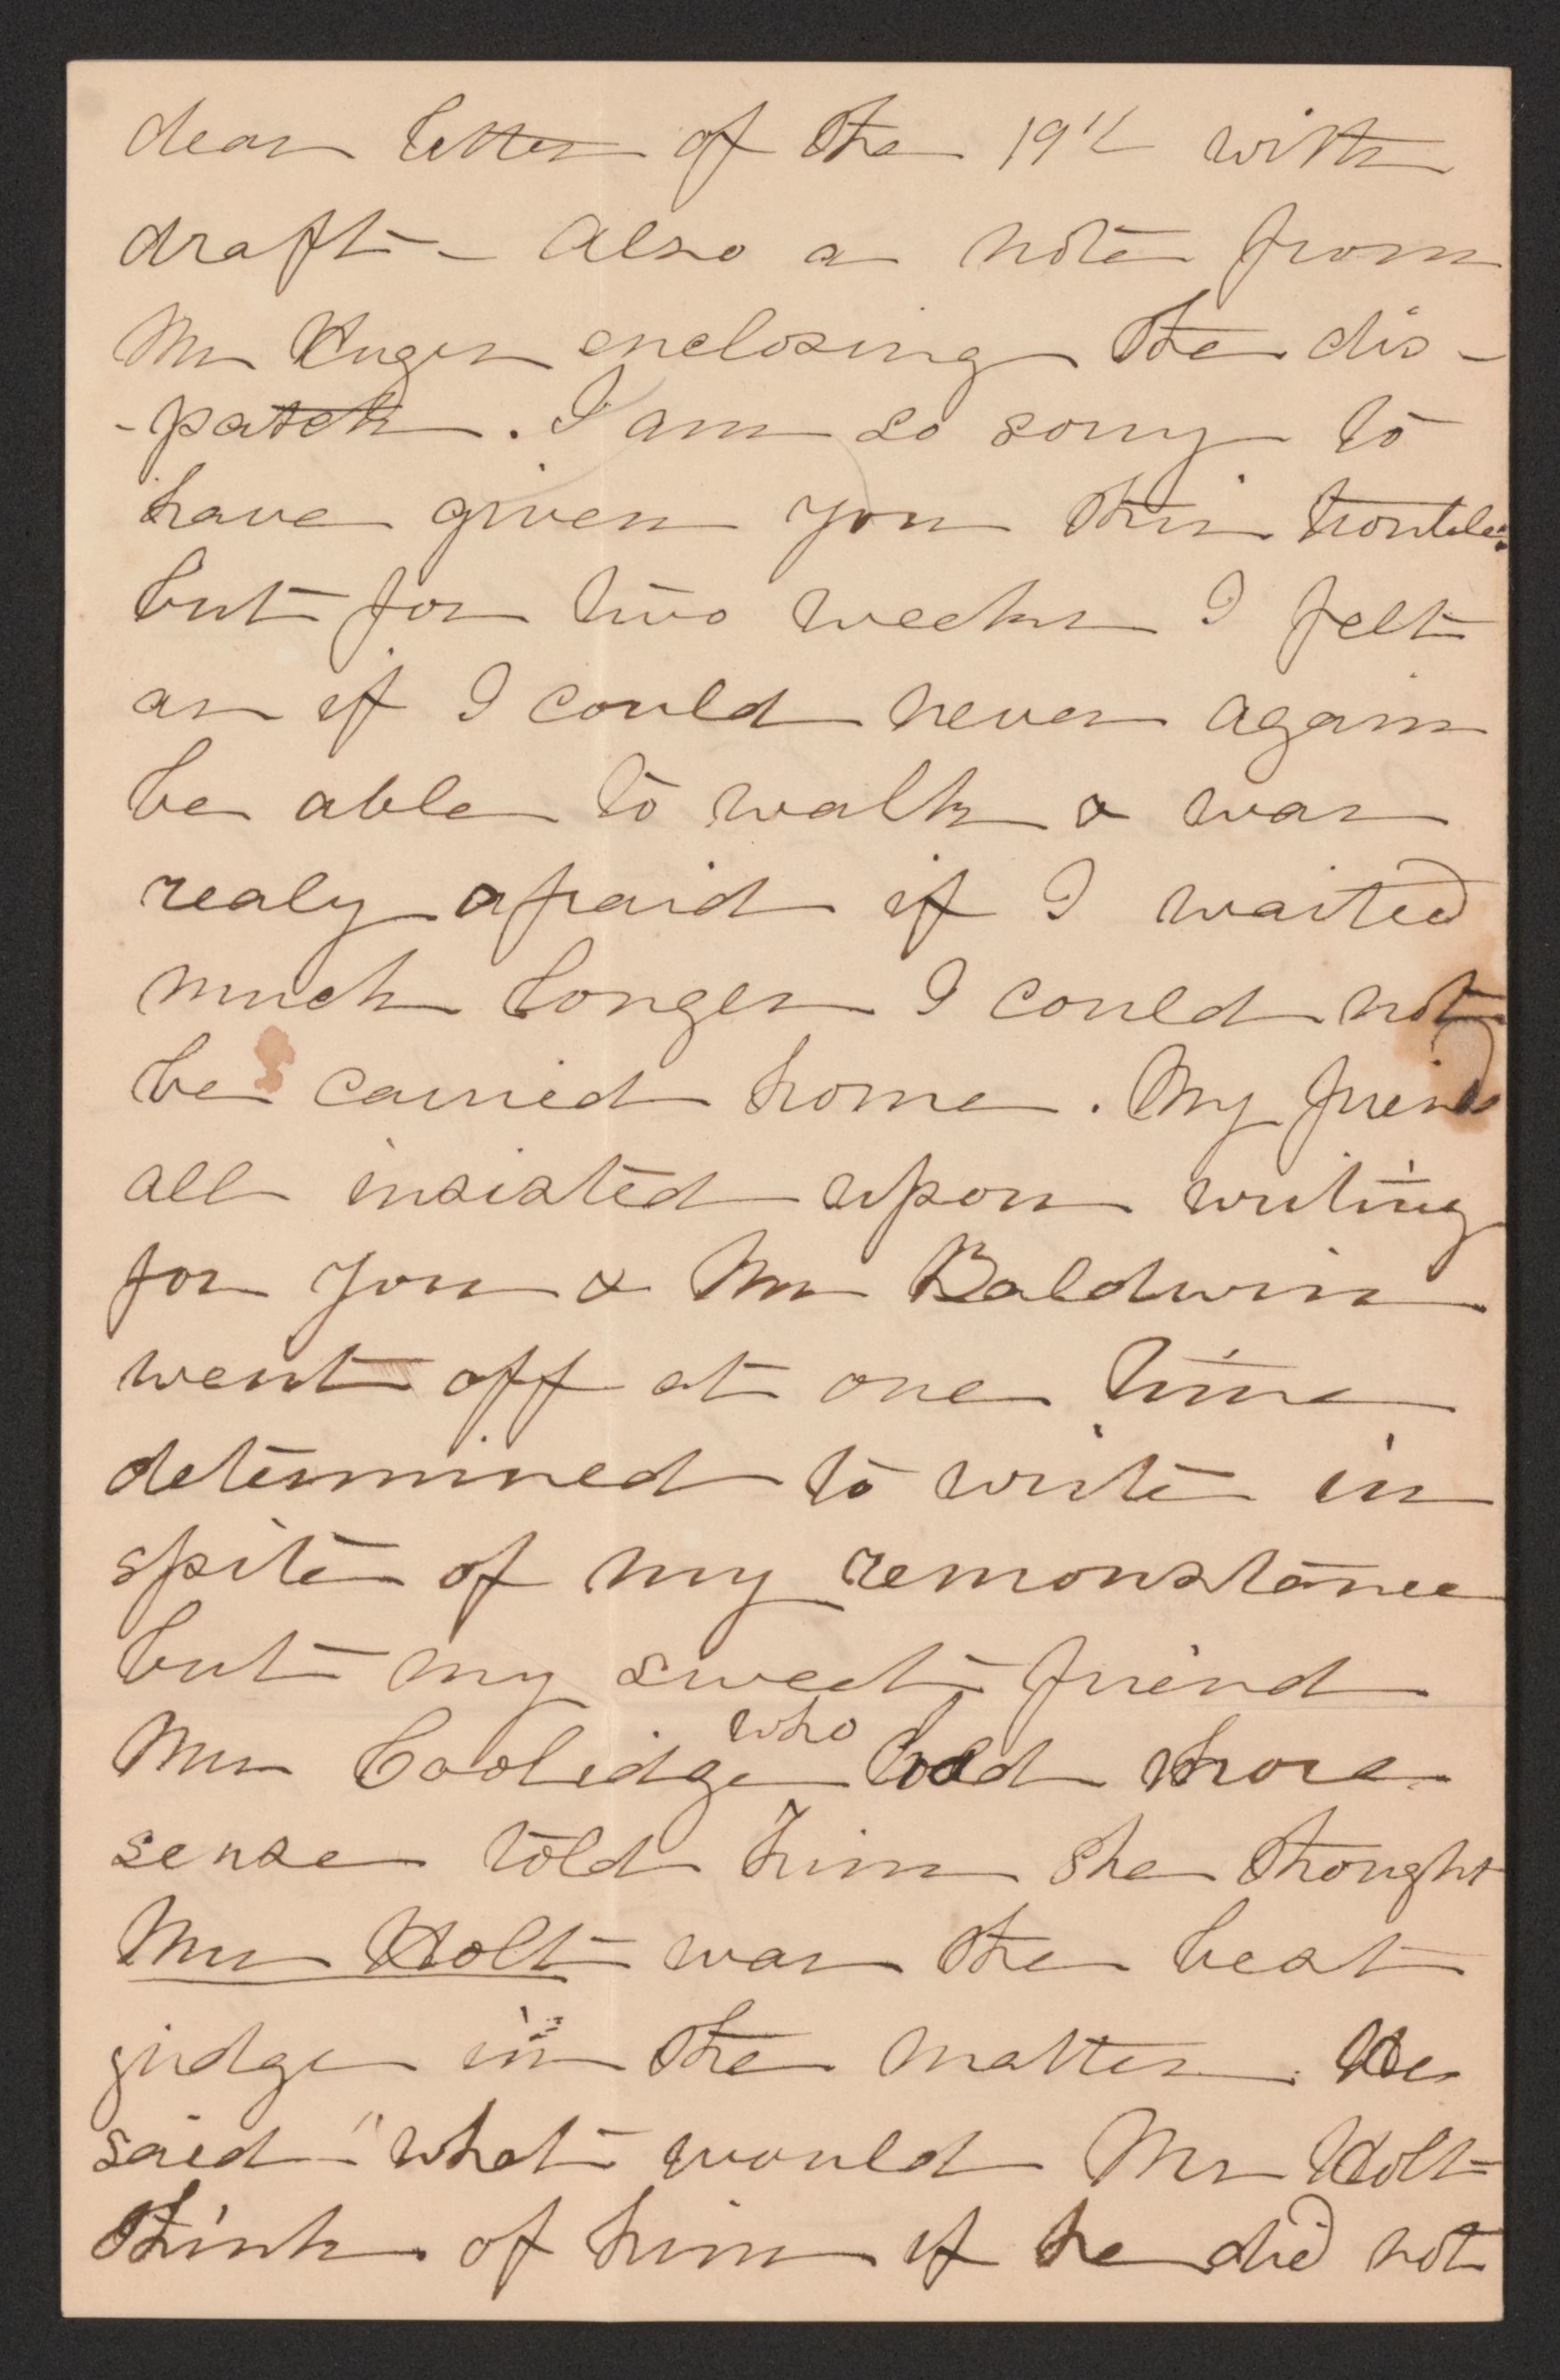 dear letter of the 19" with
draft - Also a note from
Mr Huger enclosing the dis -
- patch. I am so sorry to
have given you this trouble.
but for two weeks I felt
as if I could never again
be able to walk & was
realy afraid if I waited
much longer I could not
be carried home. My friends
all insisted upon writing
for you & Mr Baldwin
went off at one time
determined to write in
spite of my remonstance
but my sweet friend
Mrs Coolidge who had more
sense told him she thought
Mrs Holt was the best
judge in the matter. He
said - "what would Mr Holt
think of him if he did not